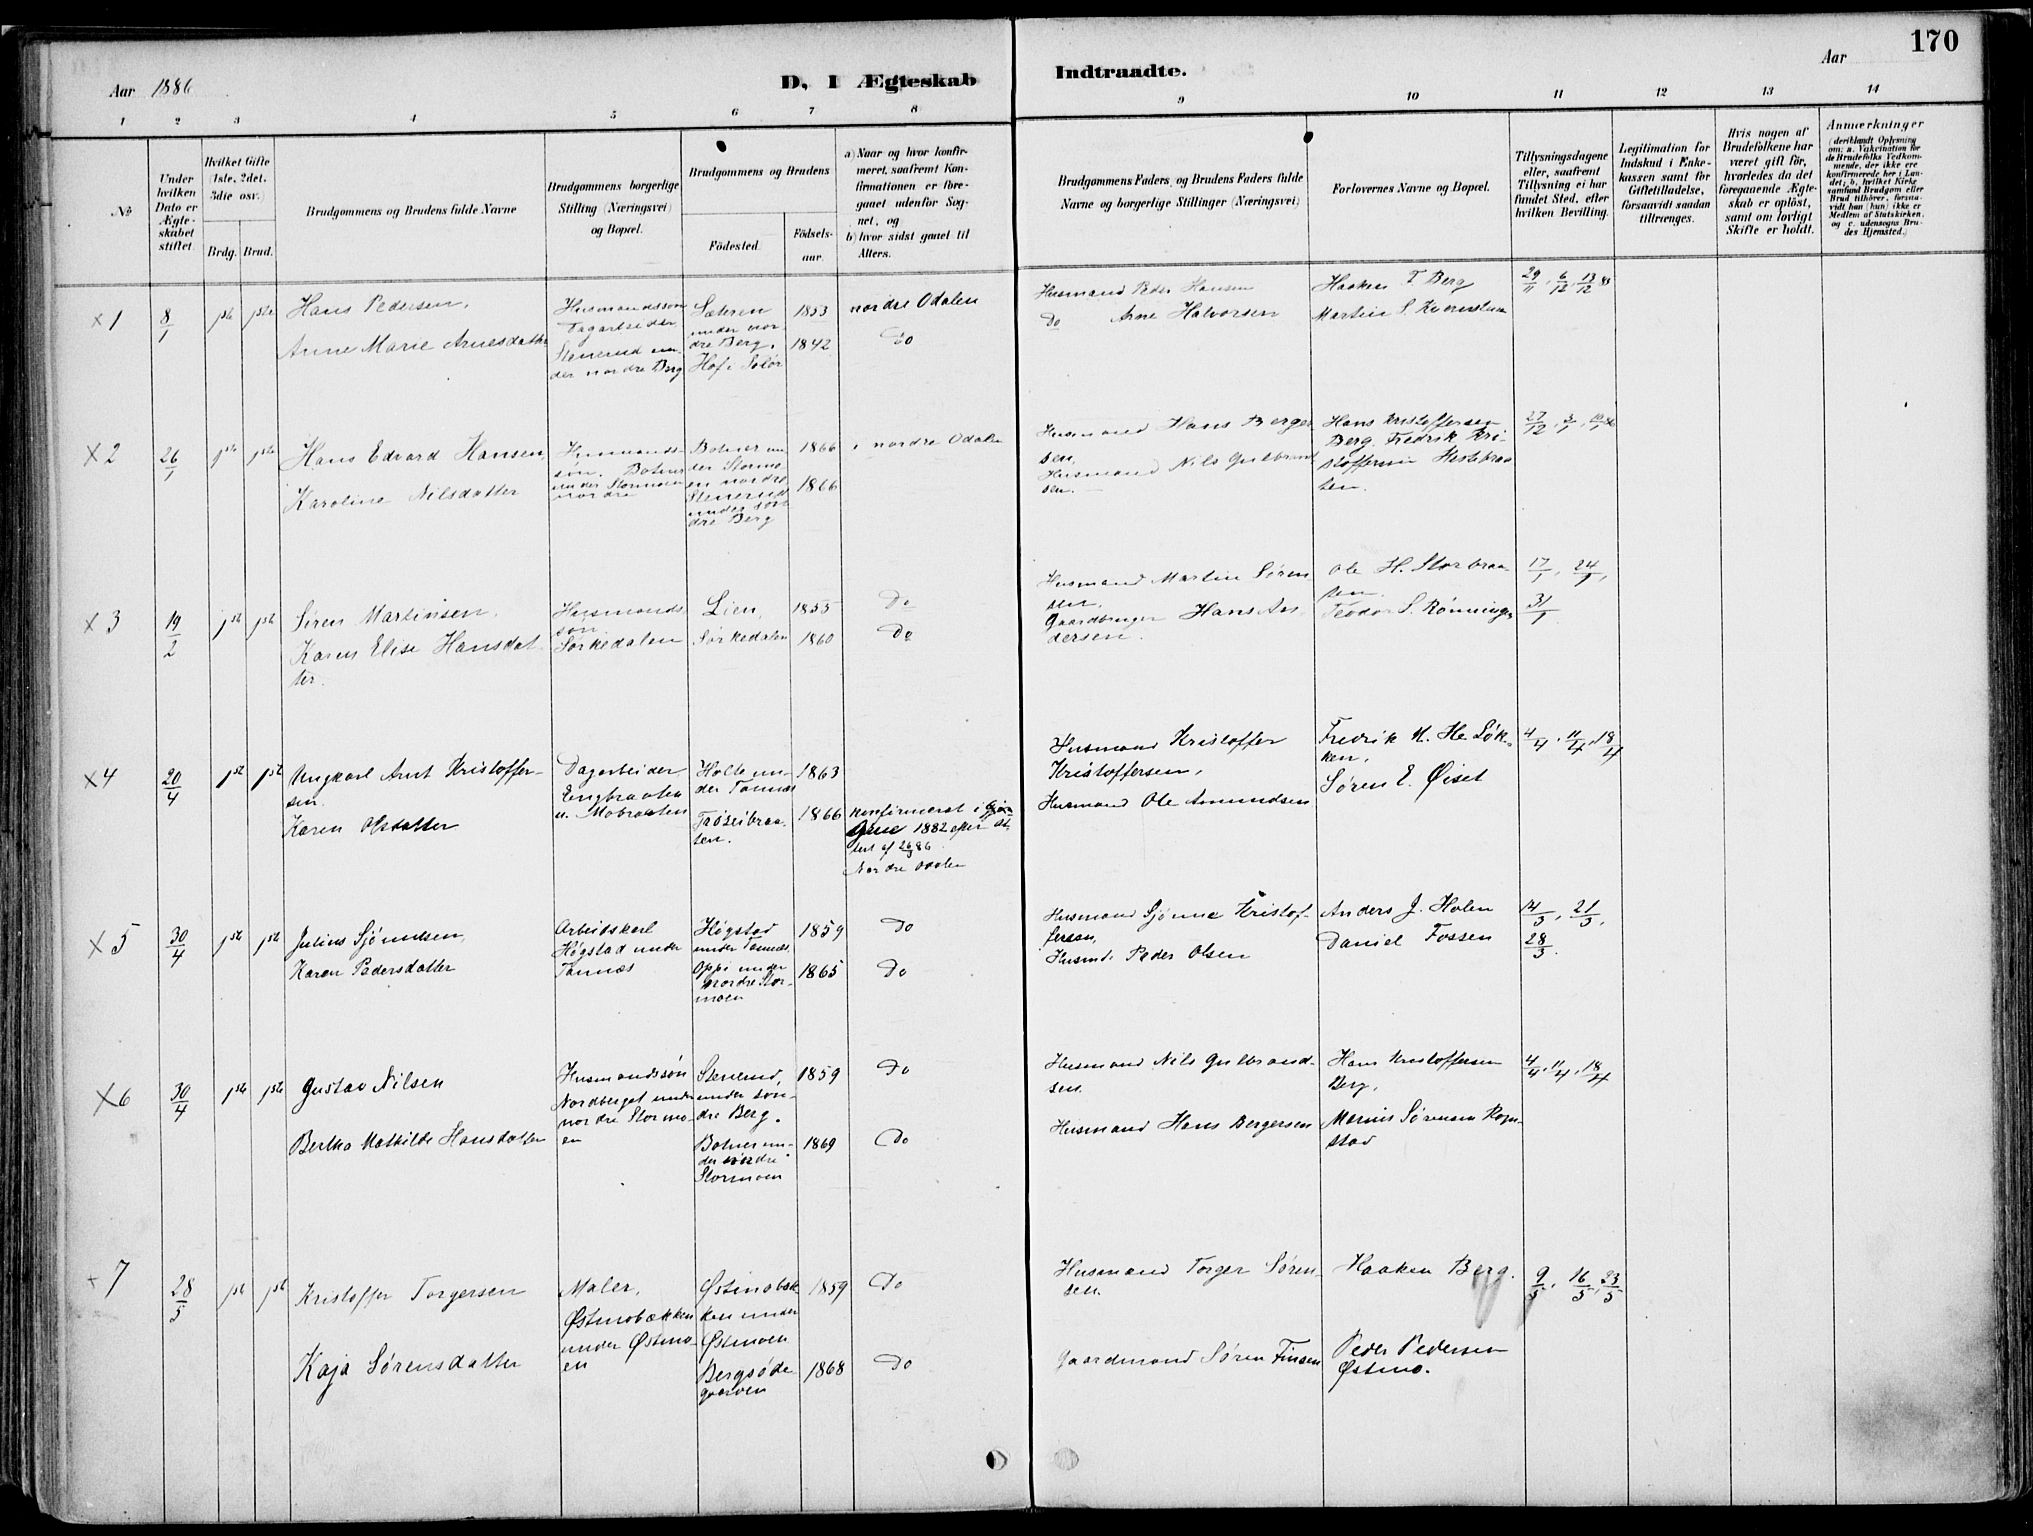 170
Aar 1886
D. I Ægteskab
Indtraadte.
Aar
1 2 3 4 5 6 7 8 9 10 11 12 13 14
No
Under hvilken Dato er Ægteskabet stiftet.
Hvilket Gifte (1ste, 2det, 3die osv.)
Brdg. Brud.
Brudgommens og Brudens fulde Navne
Brudgommens borgerlige Stilling (Næringsvei) og Bopæl.
Brudgommens og Brudens
Födested.
Födselsaar.
a) Naar og hvor konfirmeret, saafremt Konfirmationen er foregaaet udenfor Sognet, og
b) hvor sidst gaaet til Alters.
Brudgommens Faders og Brudens Faders fulde Navne og borgerlige Stillinger (Næringsvei)
Forlovernes Navne og Bopæl.
Tillysningsdagene eller, saafremt Tillysning ei har fundet Sted, efter hvilken Bevilling.
Legitimation for Indskud i Enkekassen samt for Giftetilladelse, forsaavidt saadan tiltrænges.
Hvis nogen af Brudefolkene har været gift för, hvorledes da det foregaaende Ægteskab er oplöst, samt om lovligt Skifte er holdt.
Anmærkninger
(deriblandt Oplysning om: a. Vakcination for de Brudefolks Vedkommende, der ikke ere konfirmerede her i Landet; b. hvilket Kirkesamfund Brudgom eller Brud tilhörer, forsaavidt han (hun) ikke er Medlem af Statskirken, og c. udensogns Brudes Hjemsted.)
x 1
8/1
1ste 1ste
Hans Pedersen,
Anne Marie Arnesdatter
Husmandssøn
Dagarbeider
Stenerud un-
der nordre Berg
Sæteren
under nor-
dre Berg.
Hof i Solør
1853
1842
nordre Odalen
Do
Husmand Peder Hansen
Do Arne Halvorsen
Haaken T Berg
Martin S.
29/11, 6/12, 13/12 85
x 2
26/1
1ste 1ste
Hans Edvard Hansen,
Karoline Nilsdatter
Husmands-
søn. Botner
under Stormoen
nordre
Botner un-
der Stormo-
en nordre
Stenerud
under søn-
dre Berg
1866
1866
i nordre Odalen
Husmand Hans Berger-
sen,
Husmand Nils Gulbrand-
sen.
Hans Kristoffersen
Berg. Fredrik Kri-
stoffersen Hestebraa-
ten.
27/12, 3/1, 10/1 86
x 3
19/2
1ste 1ste
Sören Martinsen,
Karen Elise Hansdat-
ter.
Husmands-
søn
Sørkedalen
Lien,
Sørkedalen
1855
1860
Do
Do
Husmand Martin Søren-
sen.
Gaardbruger Hans An-
dersen.
Ole H. Storbraa-
ten.
Teodor S. Rønningen
17/1, 24/1,
31/1
x 4
20/4
1ste 1ste
Ungkarl Arnt Kristoffer-
sen.
Karen Olsdatter
Dagarbeider,
Engbraaten
u. Mobraaten
Holte un-
der Tannæs
Trøseibraa-
ten.
1863
1866
konfirmeret i
1882 efter At-
test af 26/3 86
Nordre Odalen
Husmand Kristoffer
Kristoffersen,
Husmand Ole Amundsen
Fredrik K. He Løk-
ken,
Søren E. Øiset
4/4, 11/4, 18/4
x 5
30/4
1ste 1ste
Julius Sjønnesen,
Karen Pedersdatter
Arbeidskarl
Høgstad under
Tannæs
Høgstad
under Tannæs,
Oppi under
nordre Stor-
moen
1859
1865
Do
Do
Husmand Sjønne Kristof-
fersen,
Husmd. Peder Olsen
Anders J. Holen
Daniel Fossen
14/3, 21/3,
28/3.
x 6
30/4
1ste 1ste
Gustav Nilsen
Bertha Mathilde Hansdatter
Husmandssøn
Nordberget under
nordre Stormo-
en
Stenerud,
under søn-
dre Berg.
Botner un-
der nordre
Stormoen
1859
1869
Do
Do
Husmand Nils Gulbrand-
sen.
Husmand Hans Bergersen
Hans Kristoffersen
Berg,
Marius Sørensen Rogn-
stad
4/4, 11/4, 18/4
x 7
28/5
1ste 1ste
Kristoffer Torgersen
Kaja Sørensdatter
Maler,
Østmobækken
under Østmo-
en
Østmobæk-
ken under
Østmoen
Bergsøde-
gaarden
1859
1868
Do
Do
Husmand Torger Søren-
sen.
Gaardmand Søren Finsen
Haaken Berg.
Peder Pedersen
Østmo.
9/5, 16/5, 23/5